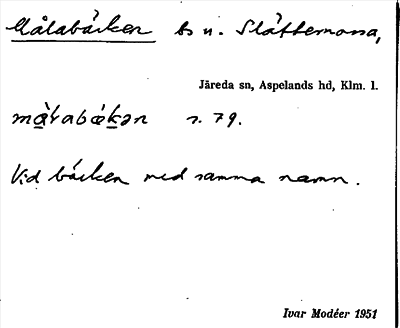 Målabäcken bs u. Slättemossa,
Järeda sn, Aspelands hd, Klm. l.
s. 79.
Vid bäcken med samma namn.
Ivar Modéer 1951